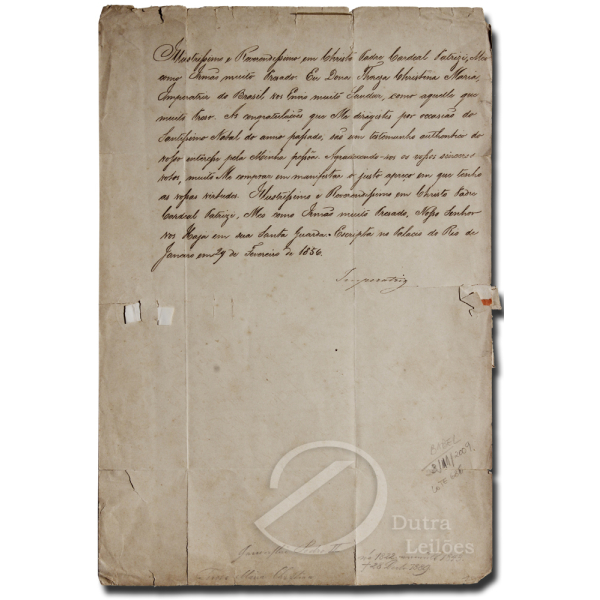 Illustrissimo e Reverendissimo em Christo Padre Cardeal Patrizi, Meo
como Irmão muito Prezado. Eu Dona Thereza Christina Maria,
Imperatriz do Brasil vos Envio muito Saudar, como aquelle que
muito Prezo. As congratulações que Me dirigistes por occasião do
Santissimo Natal do anno passado, são um testemunho authentico do
vosso interesse pela Minha pessoa. Agradecendo-vos os vossos sinceros
votos, muito Me comprazo em manifestar o justo apreço em que tenho
as vossas virtudes. Illustrissimo e Reverendissimo em Christo Padre
Cardeal Patrizi, Meo como Irmão muito Prezado, Nosso Senhor
vos Haja em sua Santa Guarda. Escripta no Palacio do Rio de
Janeiro em 29 de Fevereiro de 1856.
Imperatriz
BABEL
/11/2009
Dutra
Leilões